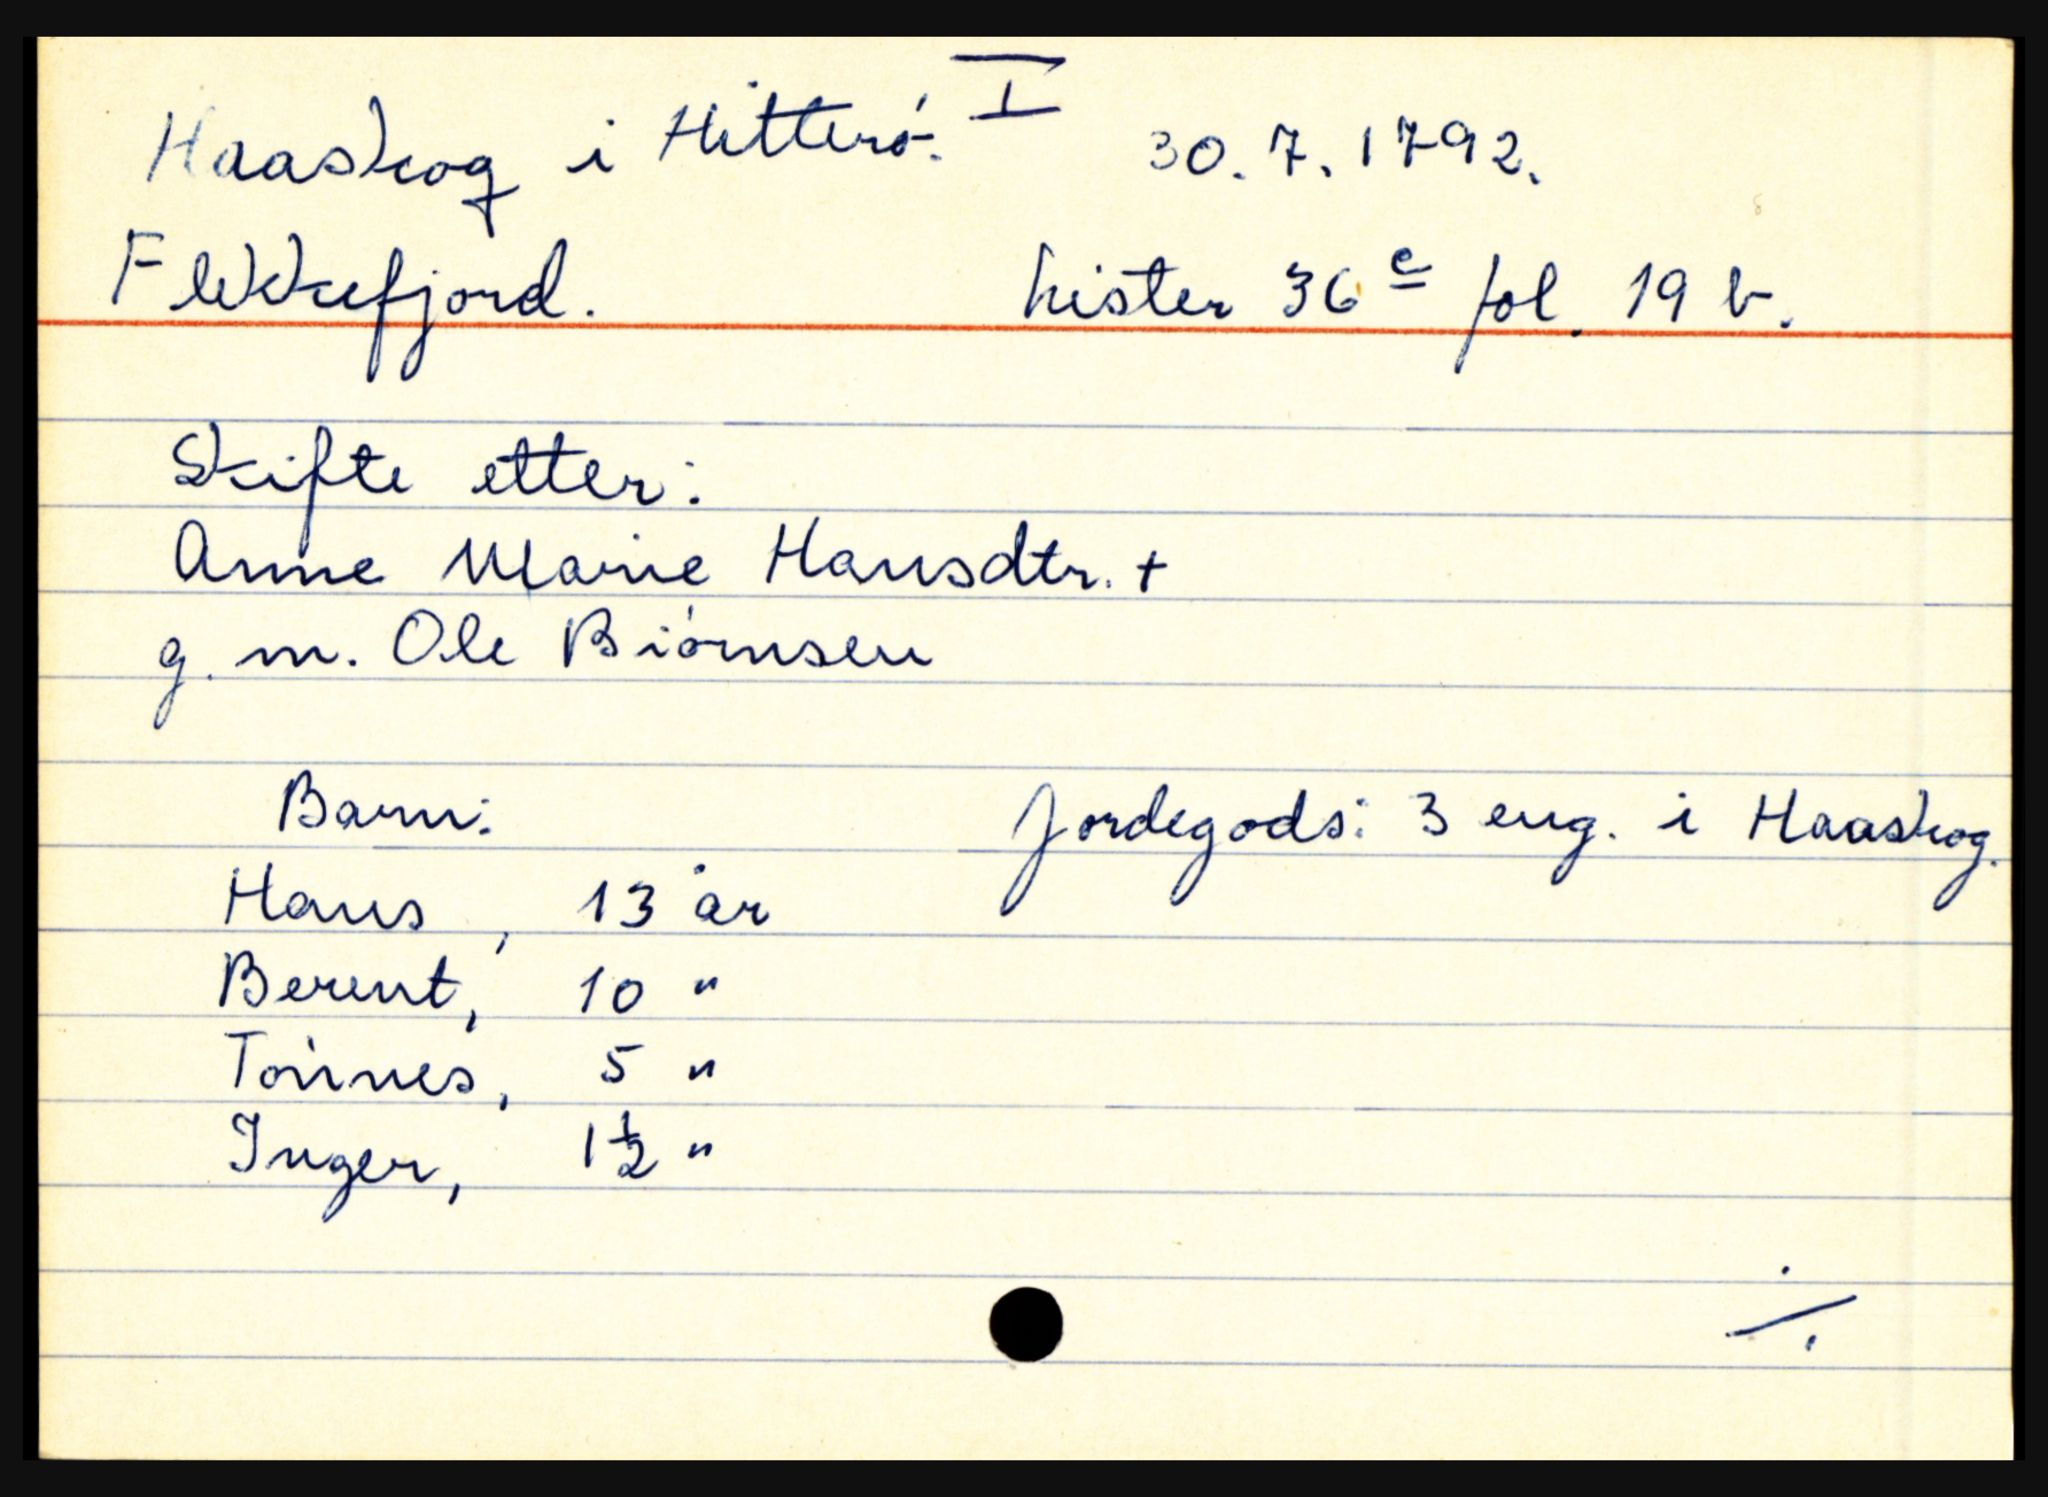 Haaskog i Hitterö. I 30.7.1792.
Flekkefjord. Lister 36 c fol. 19 b.
Skifte etter:
Anne Marie Hansdtr. +
g. m. Ole Biörnsen
Barn: Jordegods: 3 eng. i Haaskog.
Hans, 13 år
Berent, 10 "
Tönnes, 5 "
Inger, 1½ "
./.